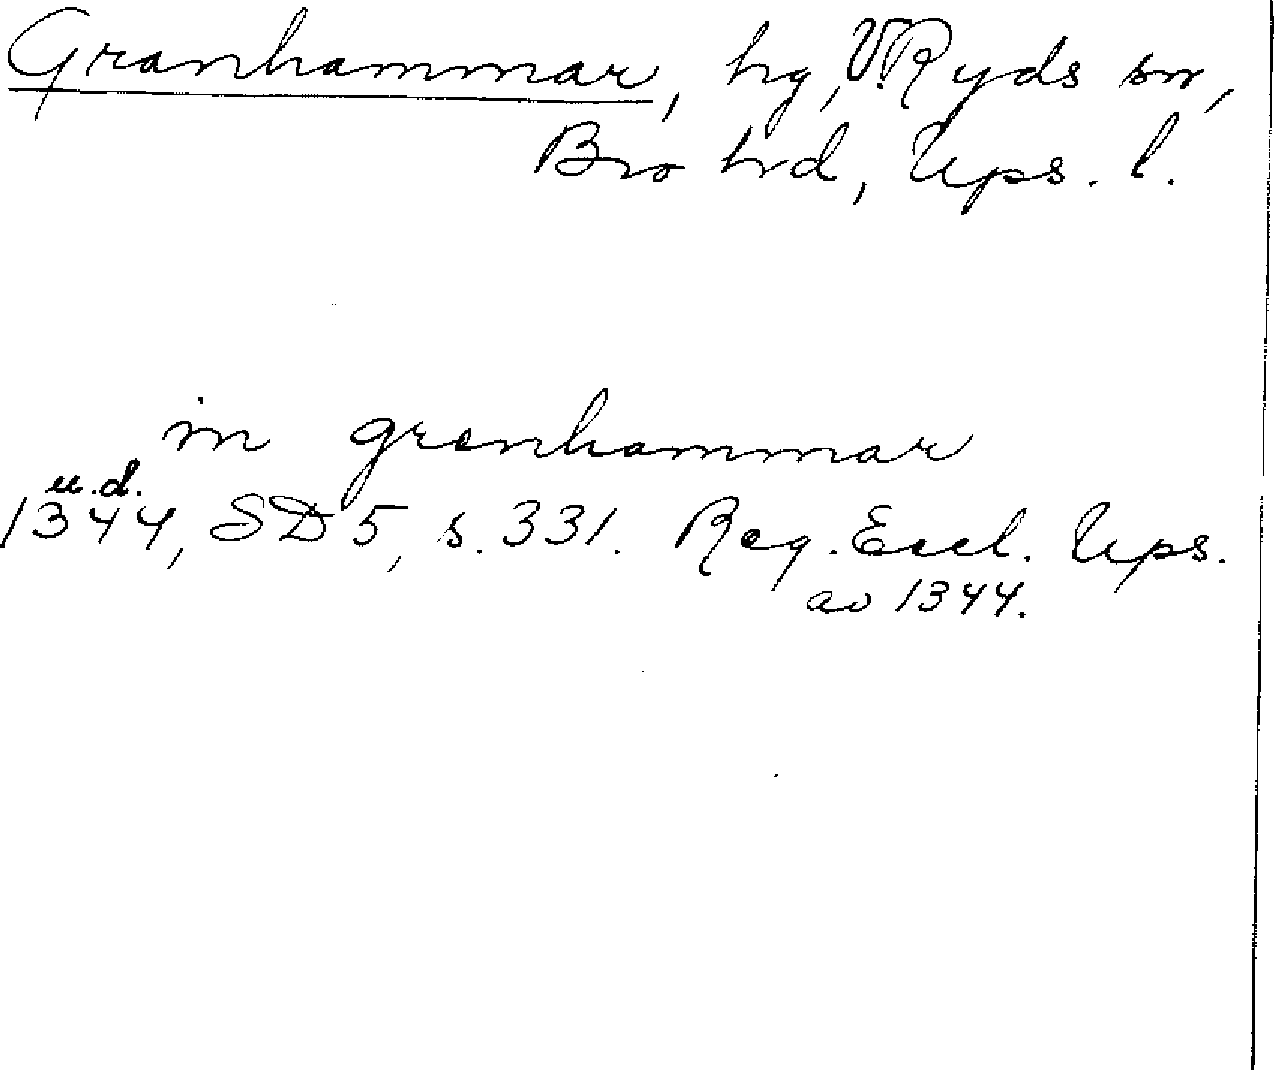 Granhammar, hg, V. Ryds sn,
Bro hrd, Ups. l.
in grenhammar
u.d.
1344, SD 5, s. 331. Reg. Eccl. Ups.
av 1344.